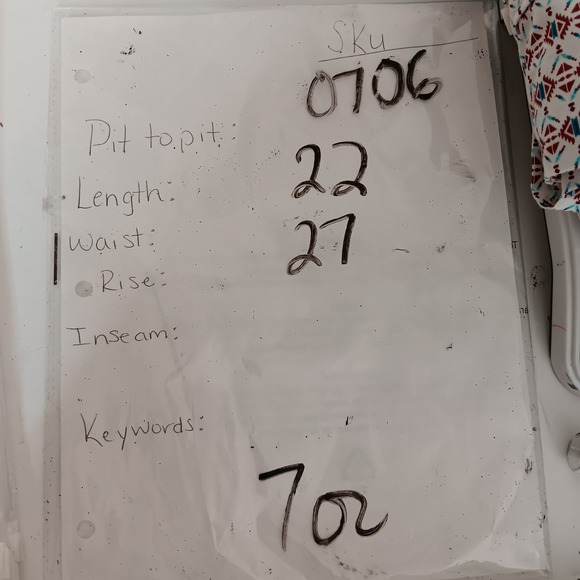 Sku
0706
Pit to pit: 22
Length: 27
Waist:
Rise:
Inseam:
Keywords:
7oz